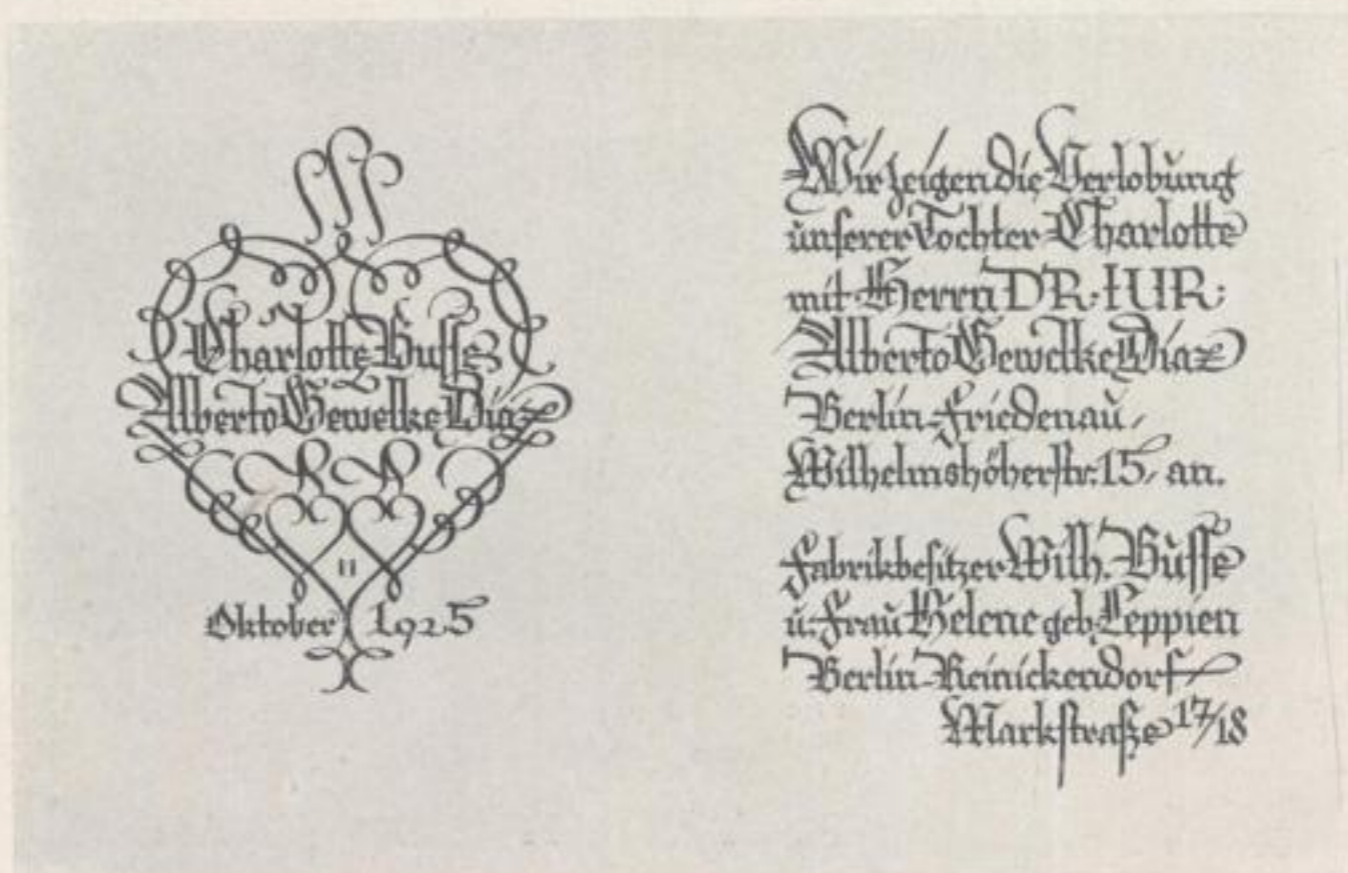 Charlotte Buſſe
Alberto Gewelke Diaz
Oktober 1925
Wir zeigen die Verlobung
unſerer Tochter Charlotte
mit Herrn DR: IUR:
Alberto Gewelke Diaz
Berlin-Friedenau,
Wilhelmshöherſtr. 15, an.
Fabrikbeſitzer Wilh. Buſſe
u. Frau Helene geb. Leppien
Berlin-Reinickendorf
Markſtraße 17/18